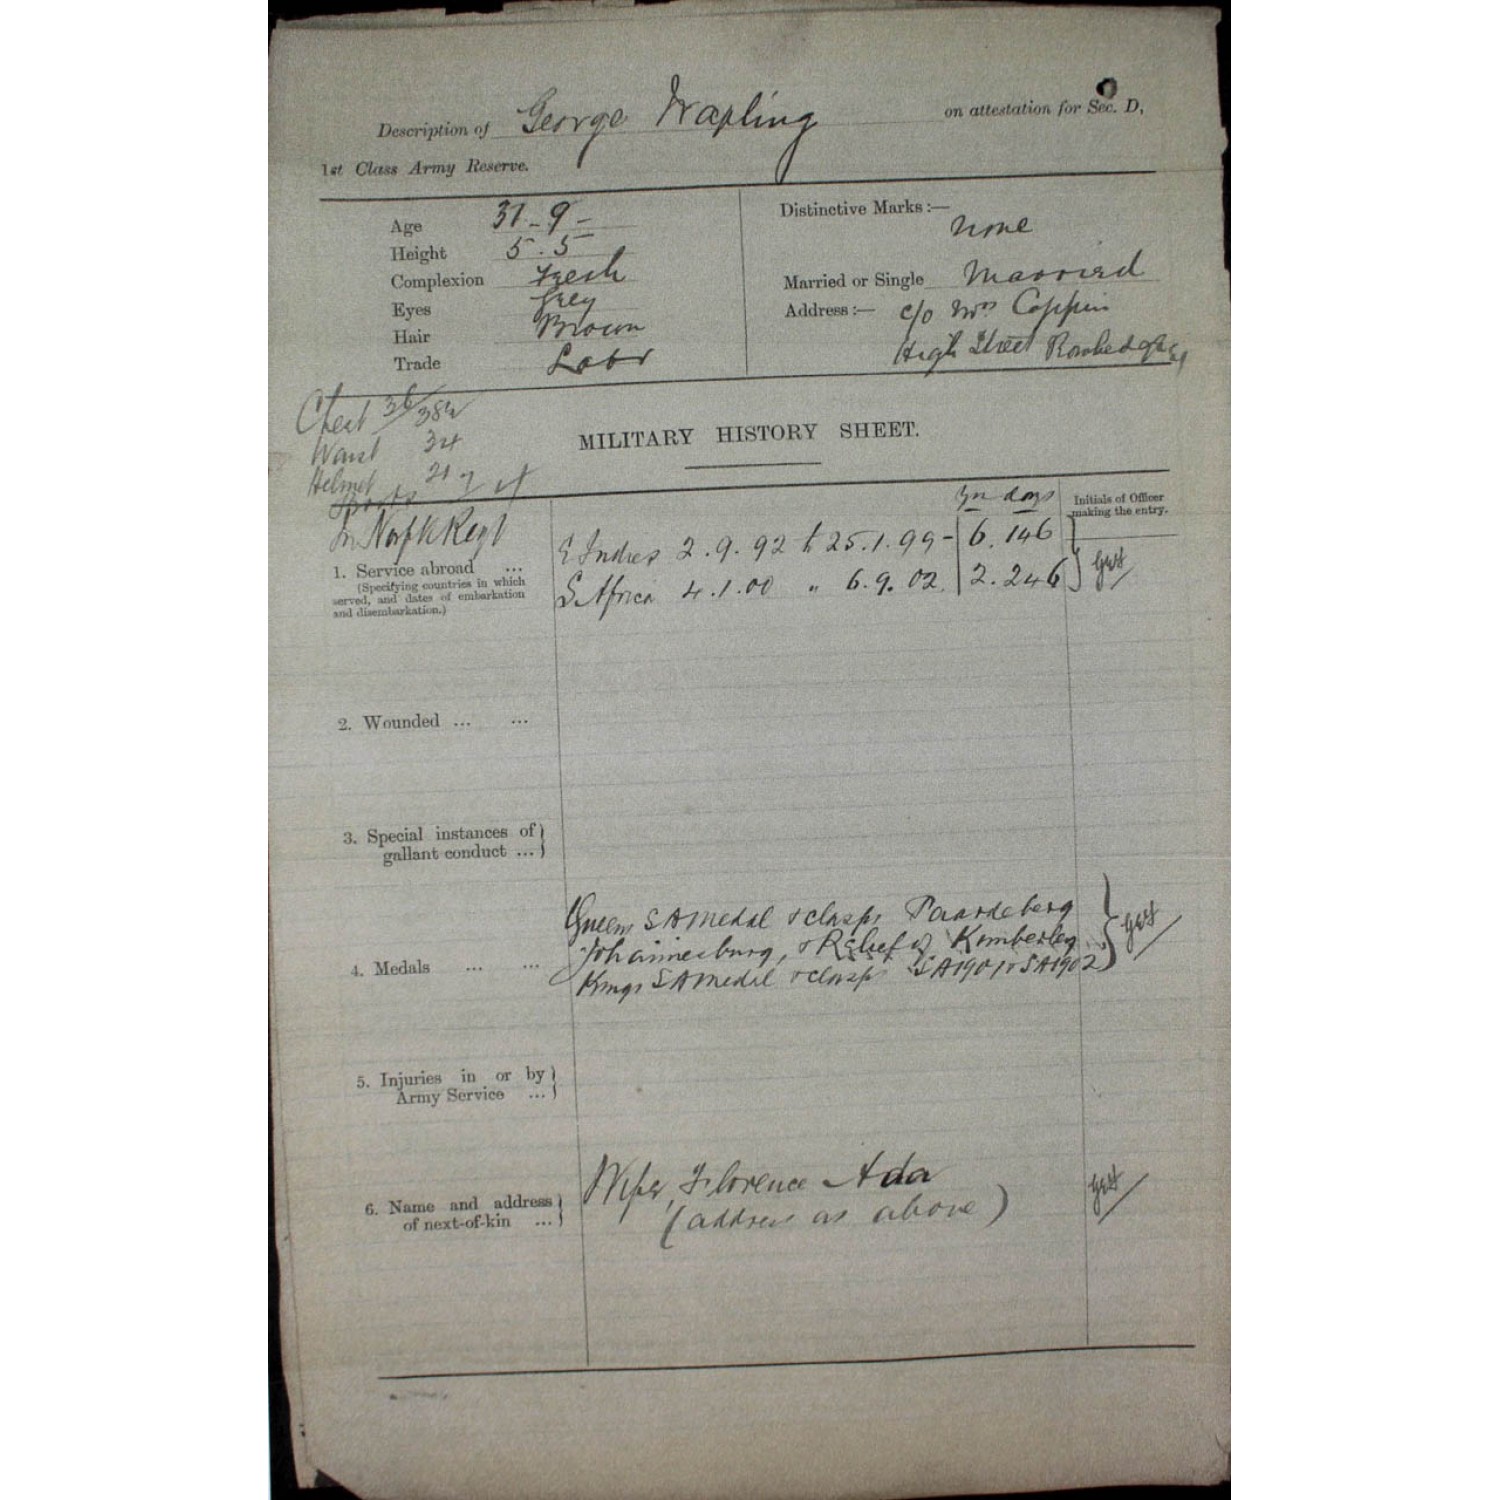 Description of George Wrapling on attestation for Sec. D,
1st Class Army Reserve.
Age 31 - 9 -
Height 5 . 5
Complexion Fresh
Eyes Grey
Hair Brown
Trade Labr
Distinctive Marks :—
None
Married or Single Married
Address :— c/o Mrs Coppin
High Street Rowhedge
Chest 36/38½
Waist 34
Helmet 21
MILITARY HISTORY SHEET.
days
Initials of Officer
making the entry.
In Norfk Regt
1. Service abroad ...
(Specifying countries in which
served, and dates of embarkation
and disembarkation.)
E Indies 2 . 9 . 92 to 25 . 1 . 99 - 6 . 146
S. Africa 4 . 1 . 00 " 6 . 9 . 02 . 2 . 246
2. Wounded ... ...
3. Special instances of
gallant conduct ...
4. Medals ... ...
Queens SA Medal & clasps Paardeberg
Johannesburg, & Relief of Kimberley
Kings SA Medal & clasps SA 1901 & SA 1902
5. Injuries in or by
Army Service ...
6. Name and address
of next-of-kin ...
Wife, Florence Ada
(address as above)